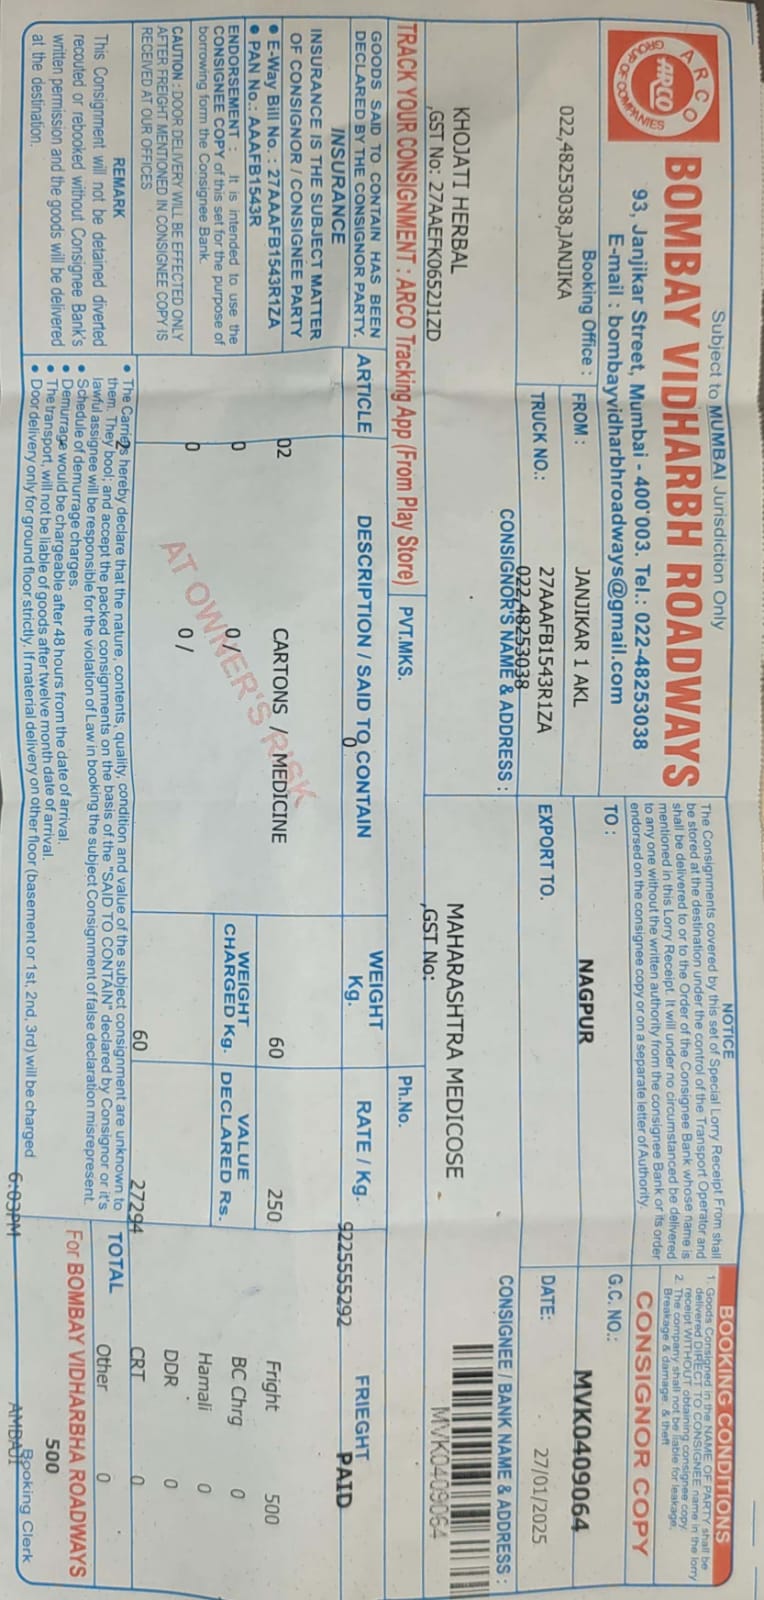 ARCO
GROUP OF COMPANIES
ARCO
Subject to MUMBAI Jurisdiction Only
BOMBAY VIDHARBH ROADWAYS
93, Janjikar Street, Mumbai - 400 003. Tel.: 022-48253038
E-mail : bombayvidharbhroadways@gmail.com
NOTICE
The Consignments covered by this set of Special Lorry Receipt From shall
be stored at the destination under the control of the Transport Operator and
shall be delivered to or to the Order of the Consignee Bank whose name is
mentioned in this Lorry Receipt. It will under no circumstanced be delivered
to any one without the written authority from the consignee Bank or its order
endorsed on the consignee copy or on a separate letter of Authority.
BOOKING CONDITIONS
1. Goods Consigned in the NAME OF PARTY shall be
delivered DIRECT TO CONSIGNEE name in the lorry
receipt WITHOUT obtaining consignee copy.
2. The company shall not be liable for leakage,
Breakage & damage & theft
CONSIGNOR COPY
Booking Office :
022,48253038,JANJIKA
FROM :
JANJIKAR 1 AKL
TO :
NAGPUR
G.C. NO.:
MVK0409064
TRUCK NO.:
27AAAFB1543R1ZA
EXPORT TO.
DATE:
27/01/2025
022,48253038
CONSIGNOR'S NAME & ADDRESS :
CONSIGNEE / BANK NAME & ADDRESS :
KHOJATI HERBAL
,GST No: 27AAEFK0652J1ZD
MAHARASHTRA MEDICOSE
,GST No:
MVK0409064
TRACK YOUR CONSIGNMENT : ARCO Tracking App (From Play Store)
PVT.MKS.
Ph.No.
GOODS SAID TO CONTAIN HAS BEEN
DECLARED BY THE CONSIGNOR PARTY.
ARTICLE
DESCRIPTION / SAID TO CONTAIN
0
WEIGHT
Kg.
RATE / Kg.
9225555292
FRIEGHT
PAID
INSURANCE
INSURANCE IS THE SUBJECT MATTER
OF CONSIGNOR / CONSIGNEE PARTY
• E-Way Bill No. : 27AAAFB1543R1ZA
• PAN No.: AAAFB1543R
ENDORSEMENT : It is intended to use the
CONSIGNEE COPY of this set for the purpose of
borrowing form the Consignee Bank.
CAUTION : DOOR DELIVERY WILL BE EFFECTED ONLY
AFTER FREIGHT MENTIONED IN CONSIGNEE COPY IS
RECEIVED AT OUR OFFICES
02
CARTONS / MEDICINE
60
250
Fright 500
0
0 /
WEIGHT
CHARGED Kg.
VALUE
DECLARED Rs.
BC Chrg 0
Hamali 0
0
0 /
DDR 0
AT OWNER'S RISK
2
60
27294
CRT 0
TOTAL
Other 0
REMARK
This Consignment will not be detained diverted
recouted or rebooked without Consignee Bank's
written permission and the goods will be delivered
at the destination.
• The Carriers hereby declare that the nature, contents, quality, condition and value of the subject consignment are unknown to
them. They book and accept the packed consignments on the basis of the "SAID TO CONTAIN" declared by Consignor or it's
lawful assignee will be responsible for the violation of Law in booking the subject Consignment of false declaration misrepresent.
• Schedule of demurrage charges.
• Demurrage would be chargeable after 48 hours from the date of arrival.
• The transport, will not be liable of goods after twelve month date of arrival.
• Door delivery only for ground floor strictly. If material delivery on other floor (basement or 1st, 2nd, 3rd) will be charged
For BOMBAY VIDHARBHA ROADWAYS
500
6:03PM
Booking Clerk
AMBAJI